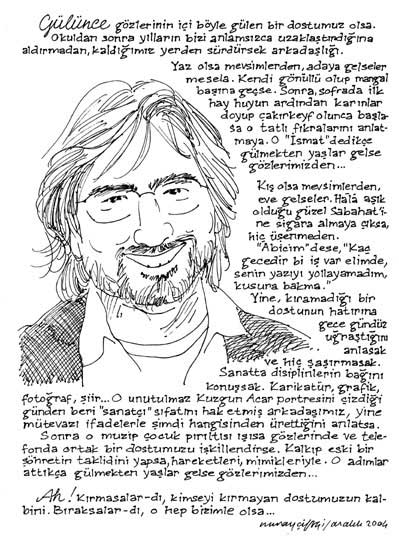 Gülünce gözlerinin içi böyle gülen bir dostumuz olsa.
Okuldan sonra yılların bizi anlamsızca uzaklaştırdığına
aldırmadan, kaldığımız yerden sürdürsek arkadaşlığı.
Yaz olsa mevsimlerden, adaya gelseler
mesela. Kendi gönüllü olup mangal
başına geçse. Sonra, sofrada ilk
hay huyun ardından karınlar
doyup çakırkeyf olunca başla-
sa o tatlı fıkralarını anlat-
maya. O "İsmat" dedikçe
gülmekten yaşlar gelse
gözlerimizden...
Kış olsa mevsimlerden,
eve gelseler. Hâlâ aşık
olduğu güzel Sabahat'i-
ne sigara almaya çıksa,
hiç üşenmeden.
"Abicim" dese, "Kaç
gecedir bi iş var elimde,
senin yazıyı yollayamadım,
kusura bakma."
Yine, kıramadığı bir
dostunun hatırına
gece gündüz
uğraştığını
anlasak
ve hiç şaşırmasak.
Sanatta disiplinlerin bağını
konuşsak. Karikatür, grafik,
fotoğraf, şiir... O unutulmaz Kuzgun Acar portresini çizdiği
günden beri "sanatçı" sıfatını hak etmiş arkadaşımız, yine
mütevazi ifadelerle şimdi hangisinden ürettiğini anlatsa.
Sonra o muzip çocuk pırıltısı ışısa gözlerinde ve tele-
fonda ortak bir dostumuzu işkillendirse. Kalkıp eski bir
şöhretin taklidini yapsa, hareketleri, mimikleriyle. O adımlar
attıkça gülmekten yaşlar gelse gözlerimizden...
Ah! Kırmasalar-dı, kimseyi kırmayan dostumuzun kal-
bini. Bıraksalar-dı, o hep bizimle olsa...
nuray çiftçi/aralık 2004